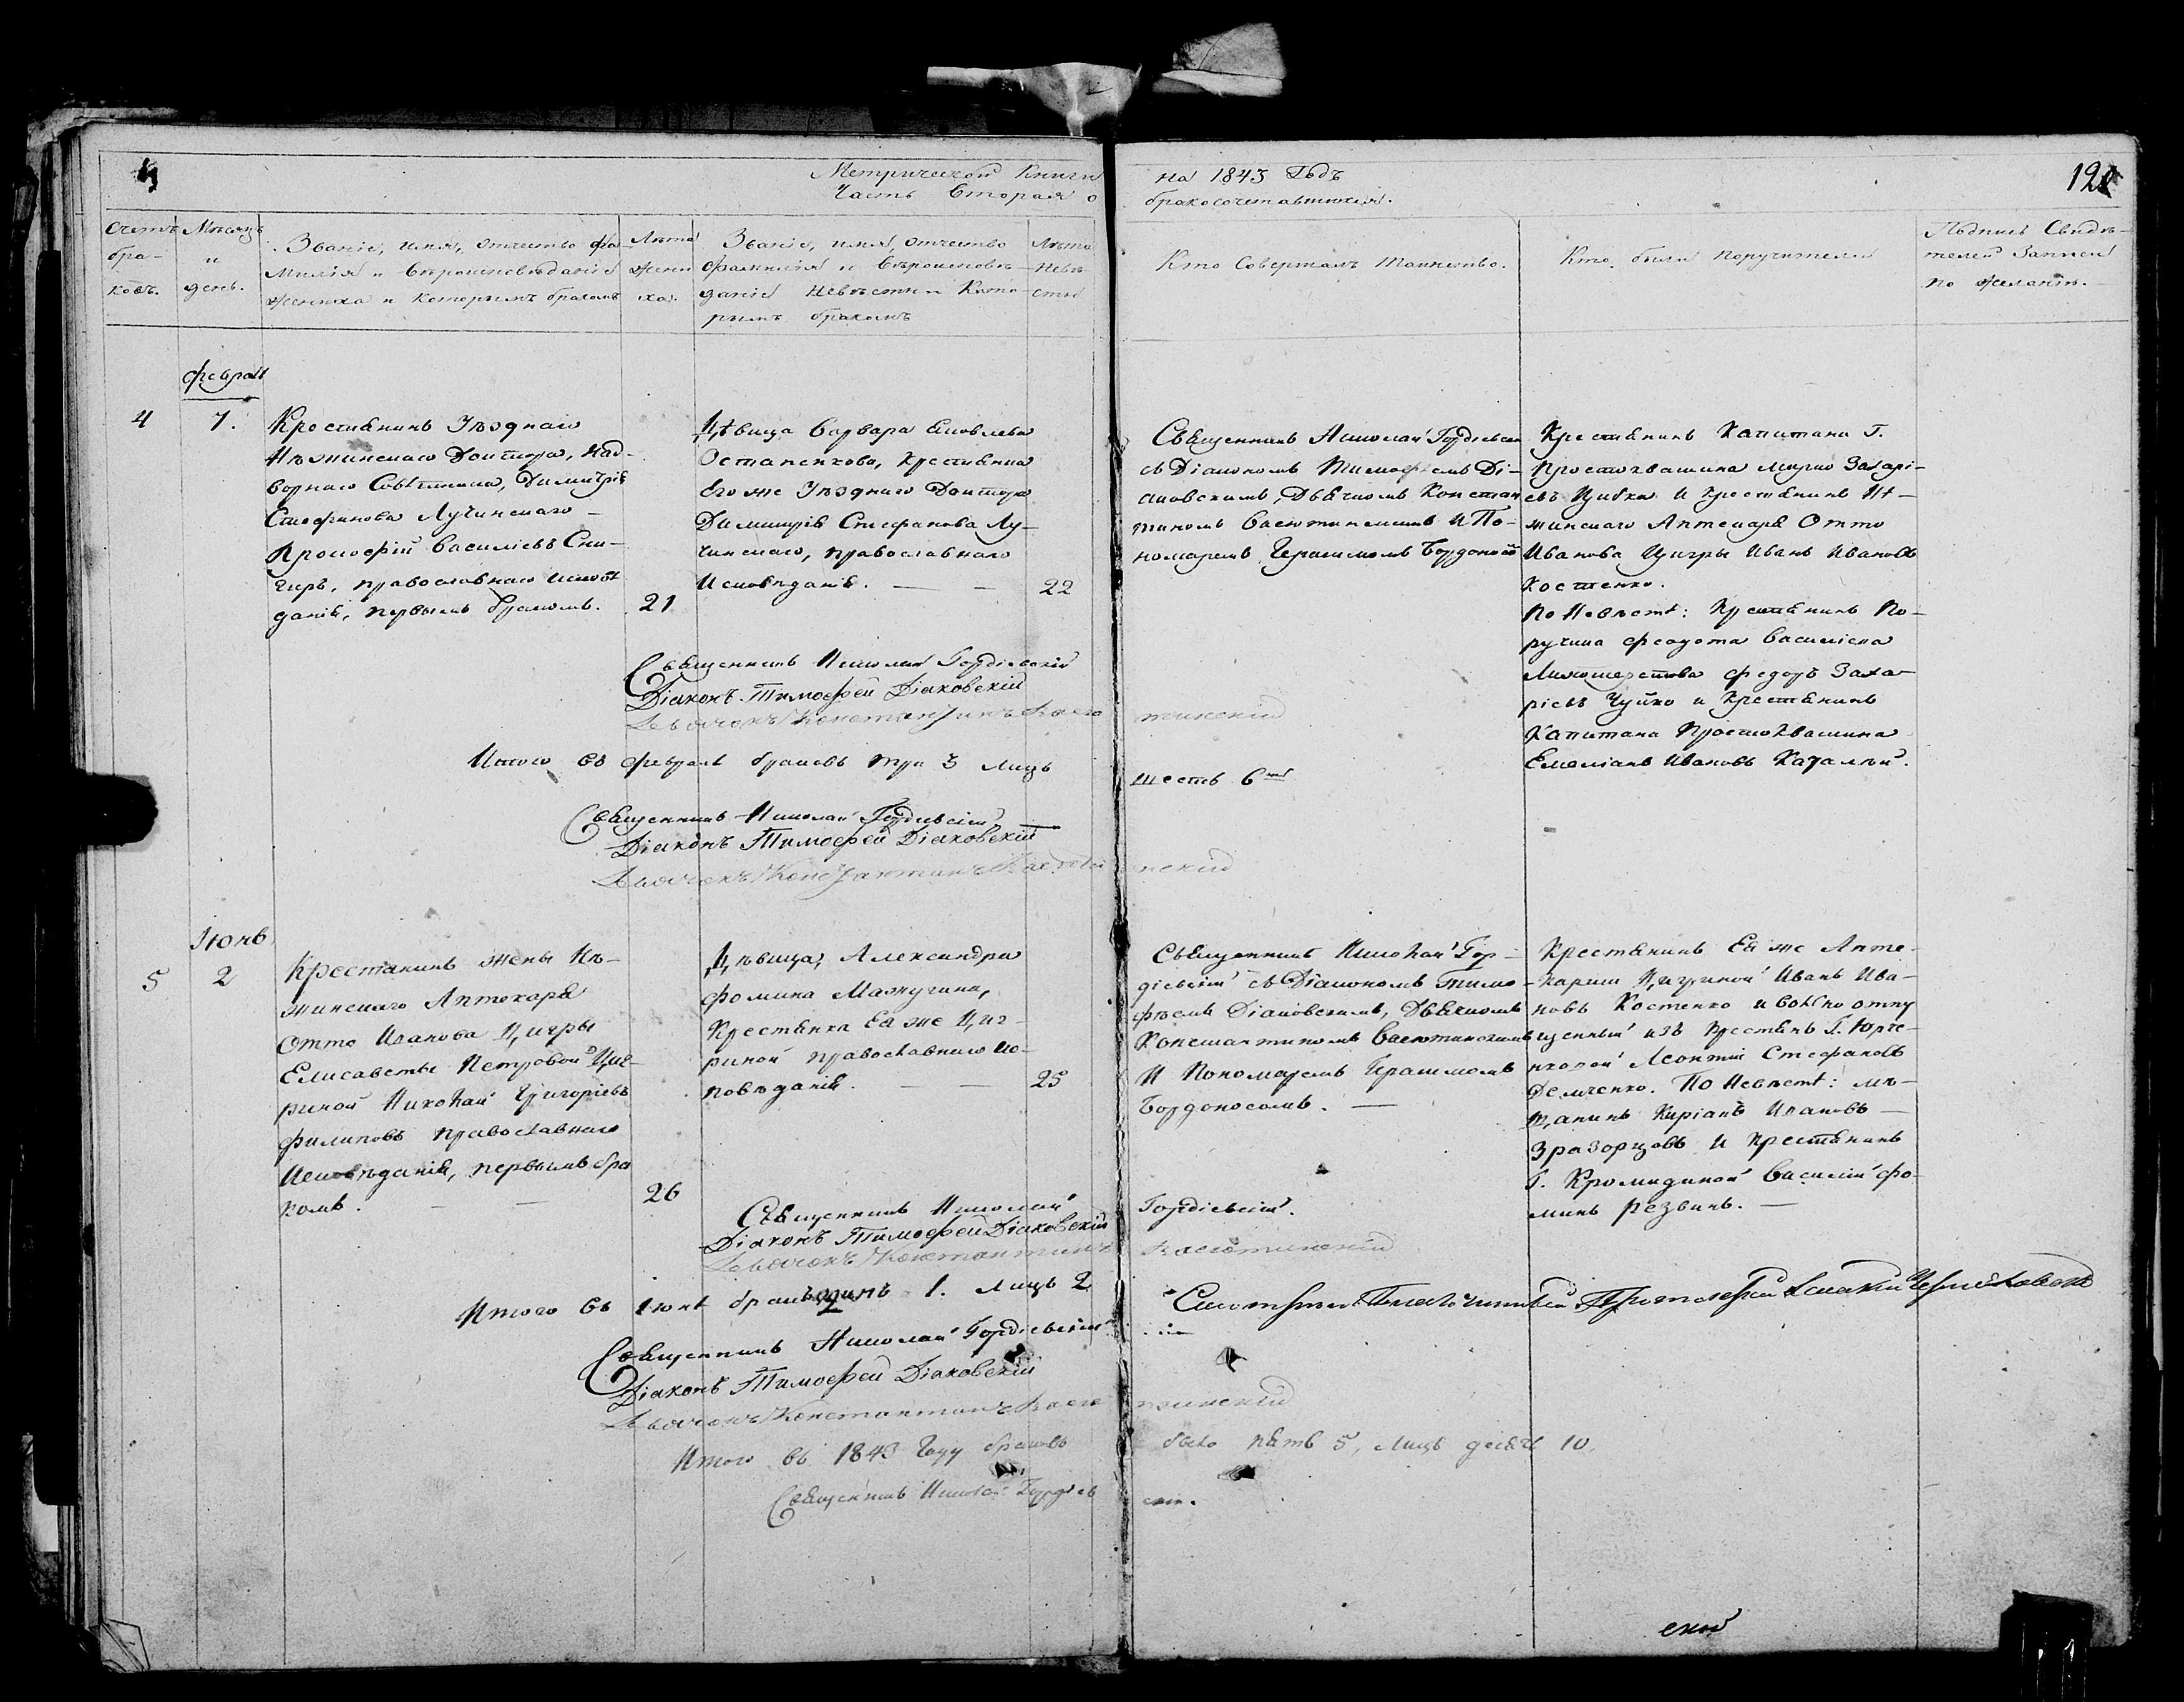 Метрической Книги на 1843 Годъ
Часть Вторая о бракосочетавшихся.
12
Счетъ бра-
ковъ.
Мѣсяцъ
и
день.
Званіе, имя, отчество фа-
милія и вѣроисповѣданіе
жениха и которымъ бракомъ
Лѣта
жени
ха.
Званіе, имя, отчество
фамилія и вѣроисповѣ-
даніе невѣсты и кото-
рымъ бракомъ
Лѣта
невѣ
сты
Кто Совершалъ Таинство.
Кто были поручители
Подписъ Свидѣ-
телей Записи
по желанію.
феврал
4
7.
Крестянинъ Уѣзднаго
Нѣжинскаго Доктора, над-
ворнаго Совѣтника, Димитрія
Стефанова Лучинскаго
Прокофій Василіевъ Сни-
гиръ, православнаго исповѣ
данія, первымъ бракомъ.
21
Дѣвица Варвара Яковлева
Остапенкова, крестянка
Его же Уѣзднаго Доктора
Димитрія Стефанова Лу-
чинскаго, православнаго
Исповѣданія.
22
Священникъ Николай Гордіевскій
съ Діакономъ Тимофеемъ Ді-
аковскимъ, Дьячкомъ Констан
тиномъ Васютинскимъ и По-
номаремъ Герасимомъ Бордоносо
Крестянинъ Капитана Г.
Простоквашина Марко Захарі-
евъ Цибка и крестянинъ Нѣ-
жинскаго Аптекаря Отто
Иванова Цигры Иванъ Ивановъ
Костенко.
По Невѣстѣ: Крестянинъ По-
ручика Феодота Василіева
Лихошерстова Федоръ Заха-
ріевъ Чуйко и Крестянинъ
Капитана Простоквашина
Емеліанъ Ивановъ
Священникъ Николай Гордіевскій
Діаконъ Тимофей Діаковскій
Дьячокъ Константинъ Васютинскій
Итого въ Февралѣ браковъ три 3 лицъ шесть 6
Священникъ Николай Гордіевскій
Діаконъ Тимофей Діаковскій
Дьячокъ Константинъ Васютинскій
Іюнь
5
2
Крестянинъ жены Нѣ-
жинскаго Аптекаря
Отто Иванова Цигры
Елисаветы Петровой Циг-
риной Николай Григоріевъ
Филиповъ православнаго
Исповѣданія, первымъ бра
комъ.
26
Дѣвица, Александра
Фомина Мажугина,
Крестянка Ея же Циг-
риной православнаго ис-
повѣданія.
25
Священникъ Николай Гор-
діевскій съ Діакономъ Тимо-
феемъ Діаковскимъ, Дьячкомъ
Константиномъ Васютинскимъ
и Пономаремъ Герасимомъ
Бордоносомъ.
Крестянинъ Ея же Апте-
карши Цигриной Иванъ Ива-
новъ Костенко и вольно отпу
щенный изъ крестянъ Г. Юрче-
нковой Леонтій Стефановъ
Демченко. По Невѣстѣ: мѣ-
щанинъ Киріанъ Ивановъ
Зразорцовъ и Крестянинъ
Г. Кромидиной Василій Фо-
минъ Резвинъ.
Священникъ Николай Гордіевскій.
Діаконъ Тимофей Діаковскій
Дьячокъ Константинъ Васютинскій
Итого въ Іюнѣ бракъ одинъ 1. Лицъ 2
Священникъ Николай Гордіевскій
Діаконъ Тимофей Діаковскій
Дьячокъ Константинъ Васютинскій
Итого въ 1843 Году браковъ было пять 5, лицъ десять 10.
Священникъ Николай Гордіевскій.